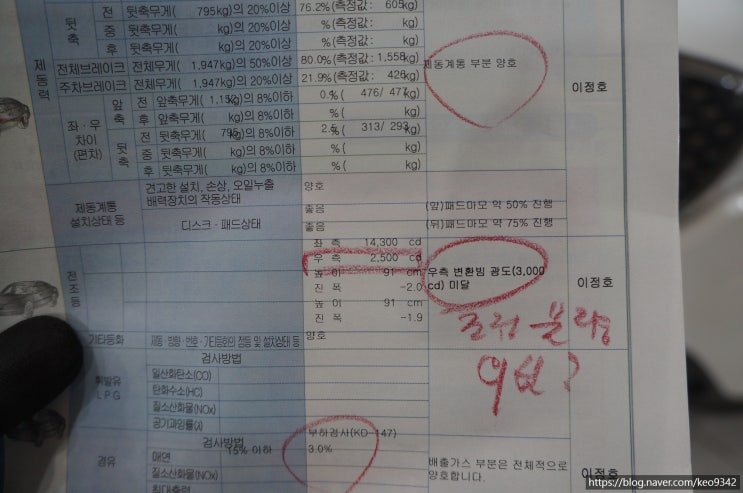 전 뒷축무게( 795kg)의 20%이상 76.2%(측정값: 605kg)
뒷축 중 뒷축무게( kg)의 20%이상 %(측정값: kg)
후 뒷축무게( kg)의 20%이상 %(측정값: kg)
제동력
전체브레이크 전체무게( 1,947kg)의 50%이상 80.0%(측정값: 1,558kg)
제동계통 부분 양호
주차브레이크 전체무게( 1,947kg)의 20%이상 21.9%(측정값: 426kg)
이정호
좌·우 차이 (편차)
앞축 전 앞축무게( 1,152kg)의 8%이하 0.%( 476/ 477kg)
후 앞축무게( kg)의 8%이하 %( kg)
뒷축 전 뒷축무게( 795kg)의 8%이하 2.%( 313/ 293kg)
중 뒷축무게( kg)의 8%이하 %( kg)
후 뒷축무게( kg)의 8%이하 %( kg)
제동계통 설치상태 등
견고한 설치, 손상, 오일누출 양호
배력장치의 작동상태
디스크·패드상태
좋음 (앞)패드마모 약 50% 진행
좋음 (뒤)패드마모 약 75% 진행
전조등
좌 측 14,300 cd
우 측 2,500 cd
높 이 91 cm
우측 변환빔 광도(3,000
진 폭 -2.0
cd) 미달
이정호
높 이 91 cm
진 폭 -1.9
불량
기타등화 제동·방향·번호·기타등화의 점등 및 설치상태 등 양호
휘발유 LPG
검사방법
일산화탄소(CO)
탄화수소(HC)
질소산화물(NOx)
공기과잉률(λ)
경유
검사방법 부하검사(KD-147)
매연 15% 이하 3.0%
질소산화물(NOx)
배출가스 부분은 전체적으로
양호합니다.
이정호
최대출력
https://blog.naver.com/keo9342